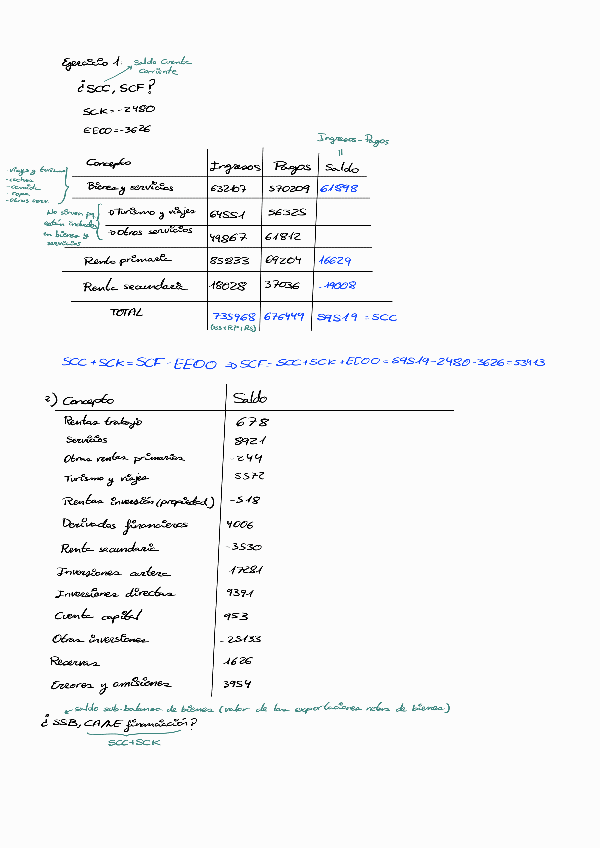 Ejercicio 1: Saldo Cuenta
corriente
¿SCC, SCF?
SCK = -2480
EEOO = -3626
Ingresos - Pagos
=
Concepto Ingresos Pagos Saldo
- viajes y turismo
- coches
- comida
- ropa
- otros serv.
Bienes y servicios 632107 570209 61898
No sirven pq
están incluidos
en bienes y
servicios
→ Turismo y viajes 64551 56325
→ Otros servicios 49867 61812
Renta primaria 85833 69204 16629
Renta secundaria 18028 37036 -19008
TOTAL 735968 676449 59519 = SCC
(BS+RP+RS)
SCC + SCK = SCF - EEOO ⇒ SCF = SCC + SCK + EEOO = 59519 - 2480 - 3626 = 53413
2) Concepto Saldo
Rentas trabajo 678
Servicios 8921
Otras rentas primarias -244
Turismo y viajes 5572
Rentas inversión (propiedad) -518
Derivados financieros 4006
Renta secundaria -3530
Inversiones cartera 17281
Inversiones directas 9391
Cuenta capital 953
Otras inversiones -25133
Reservas 1626
Errores y omisiones 3954
saldo sub-balanza de bienes (valor de las exportaciones netas de bienes)
¿SSB, CA/NE financiación?
SCC+SCK